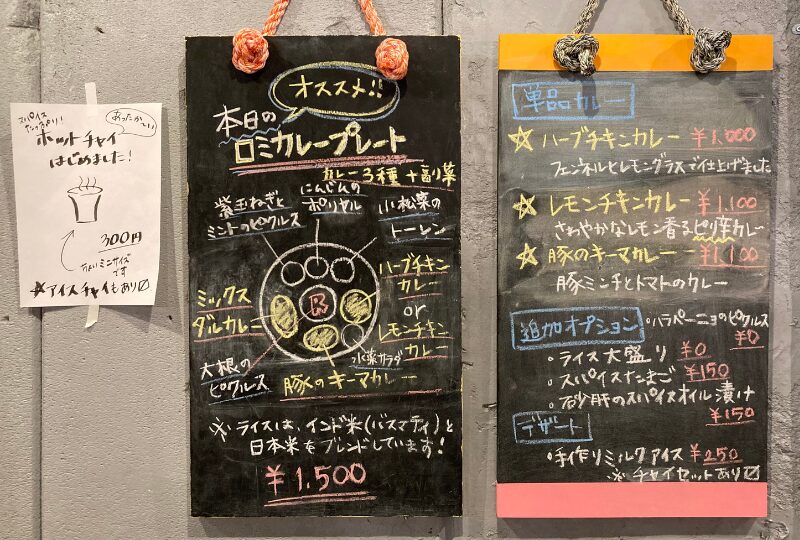 スパイス
たっぷり！
あったか〜い
ホットチャイ
はじめました！
300円
ちょいミニサイズ
です
★アイスチャイもあり☑
オススメ!!
本日の
ロミカレープレート
カレー3種+副菜
紫玉ねぎと
ミントのピクルス
にんじんの
ポリヤル
小松菜の
トーレン
ミックス
ダルカレー
R
ハーブチキン
カレー
or
レモンチキン
カレー
大根の
ピクルス
豚のキーマカレー
水菜サラダ
※ライスは、インド米(バスマティ)と
日本米をブレンドしています！
¥1.500
単品カレー
☆ハーブチキンカレー ¥1,000
フェンネルとレモングラスで仕上げました
☆レモンチキンカレー ¥1,100
さわやかなレモン香るピリ辛カレー
☆豚のキーマカレー ¥1,100
豚ミンチとトマトのカレー
追加オプション
・ハラペーニョのピクルス
¥0
・ライス大盛り ¥0
・スパイスたまご ¥150
・砂肝のスパイスオイル漬け
¥150
デザート
・手作りミルクアイス ¥250
※チャイセットあり☑